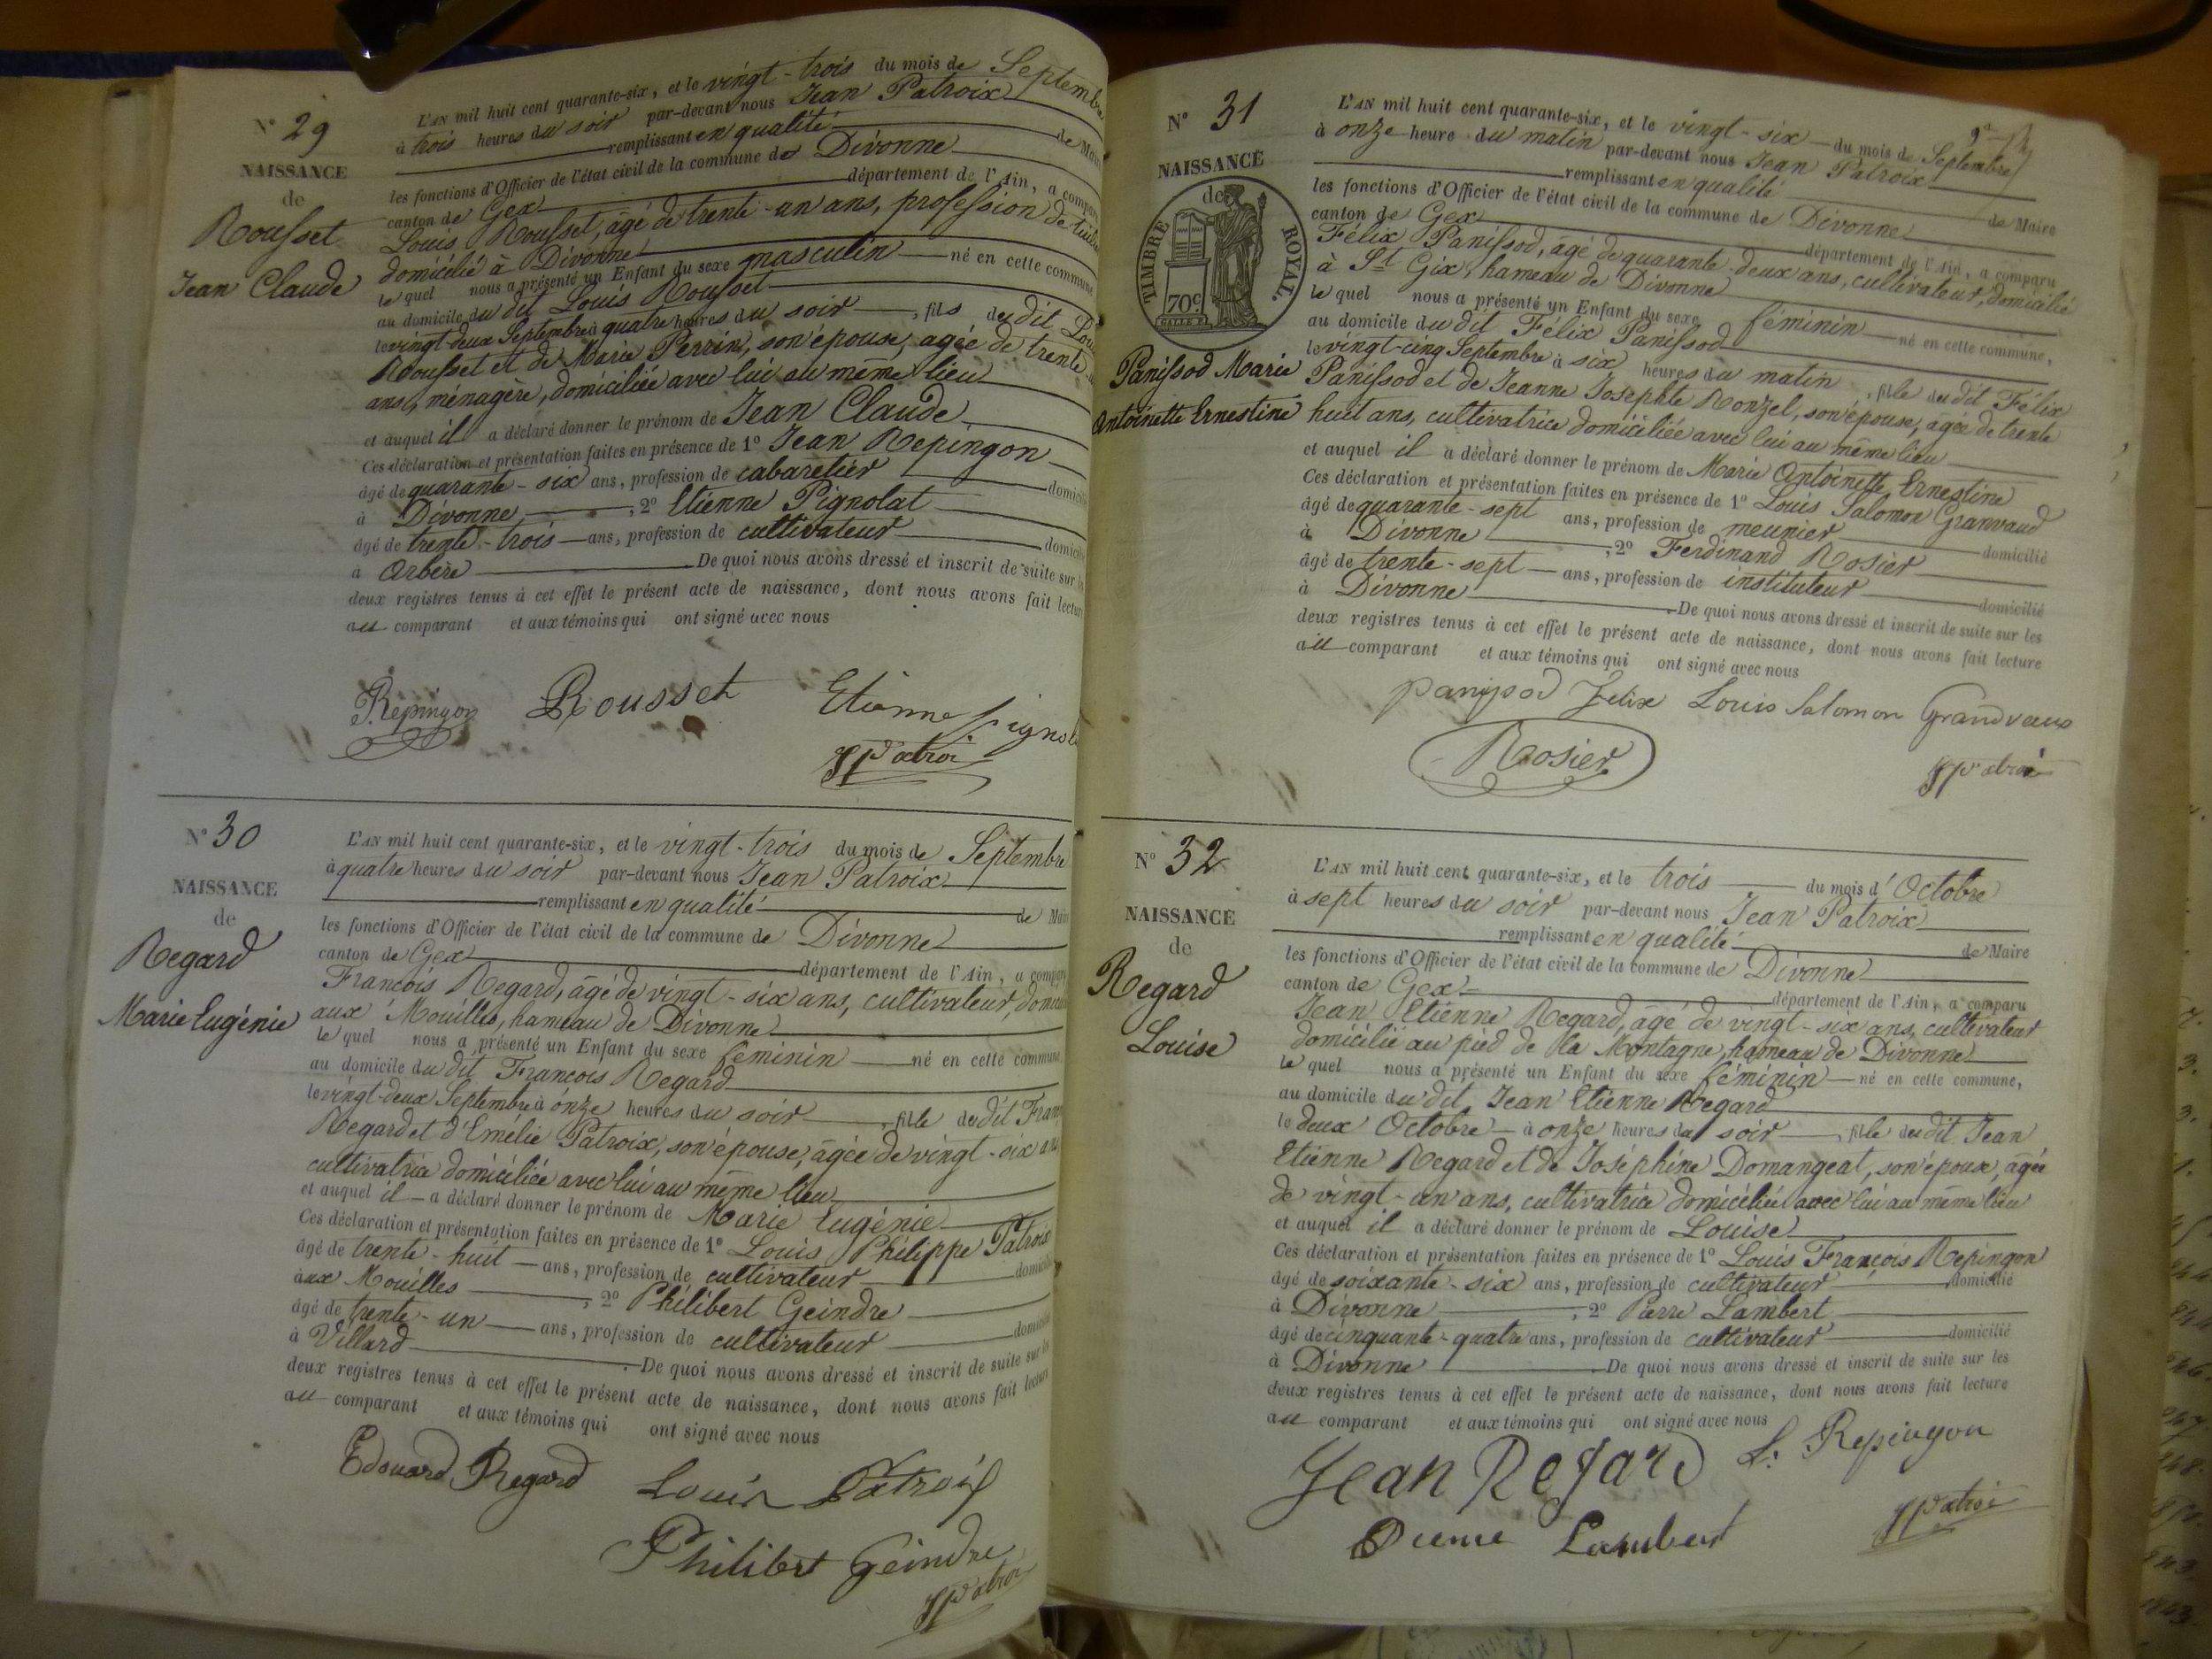 N° 29
NAISSANCE
de
Rousset
Jean Claude
L'AN mil huit cent quarante-six, et le vingt-trois du mois de Septembre
à trois heures du soir par-devant nous Jean Patroix
remplissant en qualité de Maire
les fonctions d'Officier de l'état civil de la commune de Divonne
canton de Gex département de l'Ain, a comparu
Louis Rousset, âgé de trente-un ans, profession de
domicilié à Divonne
le quel nous a présenté un Enfant du sexe masculin né en cette commune
au domicile du dit Louis Rousset
le vingt-deux Septembre à quatre heures du soir, fils du dit Louis
Rousset et de Marie Perrin, son épouse, agée de trente
ans, ménagère, domiciliée avec lui au même lieu
et auquel il a déclaré donner le prénom de Jean Claude
Ces déclaration et présentation faites en présence de 1° Jean Repingon
âgé de quarante-six ans, profession de cabaretier domicilié
à Divonne, 2° Etienne Pignolat
âgé de trente-trois ans, profession de cultivateur domicilié
à Arbère De quoi nous avons dressé et inscrit de suite sur les
deux registres tenus à cet effet le présent acte de naissance, dont nous avons fait lecture
au comparant et aux témoins qui ont signé avec nous
Répingon Rousset Etienne Pignolat
JPatroix
N° 30
NAISSANCE
de
Regard
Marie Eugénie
L'AN mil huit cent quarante-six, et le vingt-trois du mois de Septembre
à quatre heures du soir par-devant nous Jean Patroix
remplissant en qualité de Maire
les fonctions d'Officier de l'état civil de la commune de Divonne
canton de Gex département de l'Ain, a comparu
François Regard, âgé de vingt-six ans, cultivateur, domicilié
aux Mouilles, hameau de Divonne
le quel nous a présenté un Enfant du sexe féminin né en cette commune
au domicile du dit François Regard
le vingt-deux Septembre à onze heures du soir, fille du dit François
Regard et d'Emélie Patroix, son épouse, âgée de vingt-six ans
cultivatrice domiciliée avec lui au même lieu
et auquel il a déclaré donner le prénom de Marie Eugénie
Ces déclaration et présentation faites en présence de 1° Louis Philippe Patroix
âgé de trente-huit ans, profession de cultivateur domicilié
aux Mouilles, 2° Philibert Geindre
âgé de trente-un ans, profession de cultivateur domicilié
à Villard. De quoi nous avons dressé et inscrit de suite sur les
deux registres tenus à cet effet le présent acte de naissance, dont nous avons fait lecture
au comparant et aux témoins qui ont signé avec nous
Edouard Regard Louis Patroix
Philibert Geindre
JPatroix
N° 31
NAISSANCE
de
TIMBRE ROYAL.
70c
Panissod Marie
Antoinette Ernestine
L'AN mil huit cent quarante-six, et le vingt-six du mois de Septembre
à onze heure du matin par-devant nous Jean Patroix
remplissant en qualité de Maire
les fonctions d'Officier de l'état civil de la commune de Divonne
canton de Gex département de l'Ain, a comparu
Félix Panissod, âgé de quarante-deux ans, cultivateur, domicilié
à St Gix, hameau de Divonne
le quel nous a présenté un Enfant du sexe féminin né en cette commune,
au domicile du dit Félix Panissod
le vingt-cinq Septembre à six heures du matin, fille du dit Félix
Panissod et de Jeanne Josephte Ronzel, son épouse, âgée de trente
huit ans, cultivatrice domiciliée avec lui au même lieu
et auquel il a déclaré donner le prénom de Marie Antoinette Ernestine
Ces déclaration et présentation faites en présence de 1° Louis Salomon Granvaud
âgé de quarante-sept ans, profession de meunier domicilié
à Divonne, 2° Ferdinand Rosier
âgé de trente-sept ans, profession de instituteur domicilié
à Divonne. De quoi nous avons dressé et inscrit de suite sur les
deux registres tenus à cet effet le présent acte de naissance, dont nous avons fait lecture
au comparant et aux témoins qui ont signé avec nous
panissod felix Louis Salomon Grandvaux
Rosier
JPatroix
N° 32
NAISSANCE
de
Regard
Louise
L'AN mil huit cent quarante-six, et le trois du mois d'Octobre
à sept heures du soir par-devant nous Jean Patroix
remplissant en qualité de Maire
les fonctions d'Officier de l'état civil de la commune de Divonne
canton de Gex département de l'Ain, a comparu
Jean Etienne Regard, âgé de vingt-six ans, cultivateur
domicilié au pied de la Montagne, hameau de Divonne
le quel nous a présenté un Enfant du sexe féminin né en cette commune,
au domicile du dit Jean Etienne Regard
le deux Octobre à onze heures du soir, fille du dit Jean
Etienne Regard et de Joséphine Domangeat, son épouse, âgée
de vingt-un ans, cultivatrice domiciliée avec lui au même lieu
et auquel il a déclaré donner le prénom de Louise
Ces déclaration et présentation faites en présence de 1° Louis François Repingon
âgé de soixante-six ans, profession de cultivateur domicilié
à Divonne, 2° Pierre Lambert
âgé de cinquante-quatre ans, profession de cultivateur domicilié
à Divonne. De quoi nous avons dressé et inscrit de suite sur les
deux registres tenus à cet effet le présent acte de naissance, dont nous avons fait lecture
au comparant et aux témoins qui ont signé avec nous
Jean Regard L. Repingon
Pierre Lambert
JPatroix